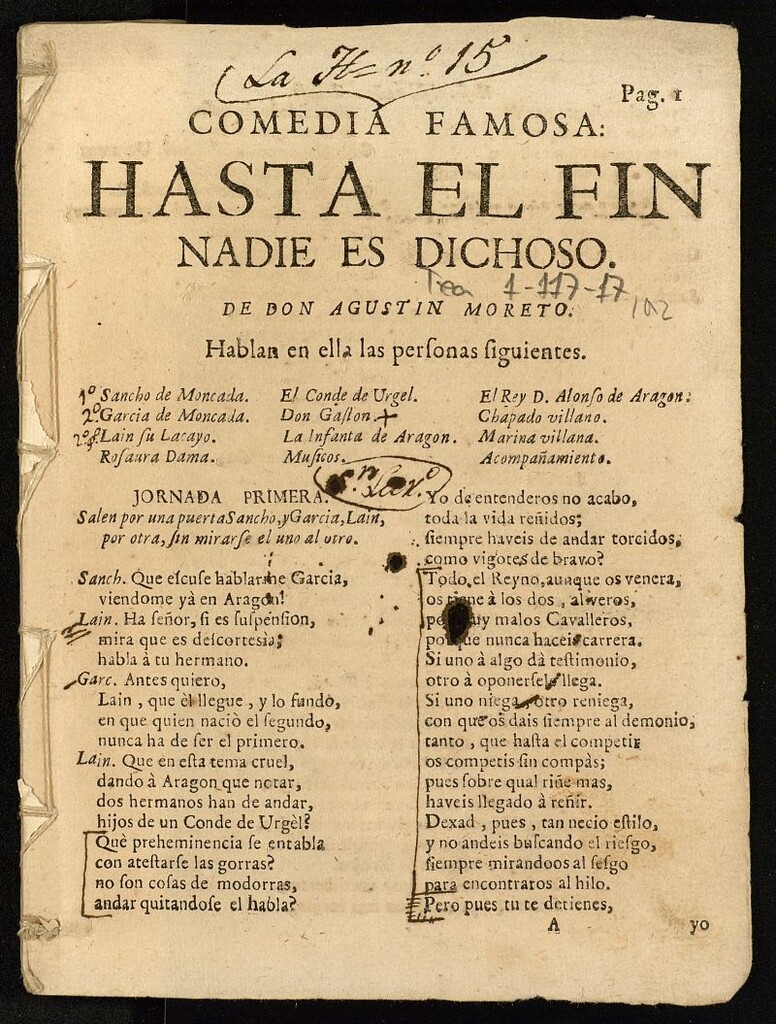 La H= nº 15
Pag. 1
COMEDIA FAMOSA:
HASTA EL FIN
NADIE ES DICHOSO.
Tea 1-117-17
102
DE DON AGUSTIN MORETO.
Hablan en ella las perſonas ſiguientes.
1º Sancho de Moncada. El Conde de Urgel. El Rey D. Alonſo de Aragon:
2º Garcia de Moncada. Don Gaſton. + Chapado villano.
2º Lain ſu Lacayo. La Infanta de Aragon. Marina villana.
Roſaura Dama. Muſicos. Acompañamiento.
JORNADA PRIMERA.
Salen por una puerta Sancho, y Garcia, Lain,
por otra, ſin mirarſe el uno al otro.
Sanch. Que eſcuſe hablarme Garcia,
viendome yà en Aragon!
Lain. Ha ſeñor, ſi es ſuſpenſion,
mira que es deſcortesia;
habla à tu hermano.
Garc. Antes quiero,
Lain, que èl llegue, y lo fundo,
en que quien naciò el ſegundo,
nunca ha de ſer el primero.
Lain. Que en eſta tema cruel,
dando à Aragon que notar,
dos hermanos han de andar,
hijos de un Conde de Urgèl?
Què preheminencia ſe entabla
con ateſtarſe las gorras?
no ſon coſas de modorras,
andar quitandoſe el habla?
Yo de entenderos no acabo,
toda la vida reñidos;
ſiempre haveis de andar torcidos,
como vigotes de bravo?
Todo el Reyno, aunque os venera,
os tiene à los dos, al veros,
por muy malos Cavalleros,
porque nunca haceis carrera.
Si uno à algo dà teſtimonio,
otro à oponerſele llega.
Si uno niega, otro reniega,
con que os dais ſiempre al demonio,
tanto, que haſta el competir
os competis ſin compàs;
pues ſobre qual riñe mas,
haveis llegado à reñir.
Dexad, pues, tan necio eſtilo,
y no andeis buſcando el rieſgo,
ſiempre mirandoos al ſeſgo
para encontraros al hilo.
Pero pues tu te detienes,
A
yo